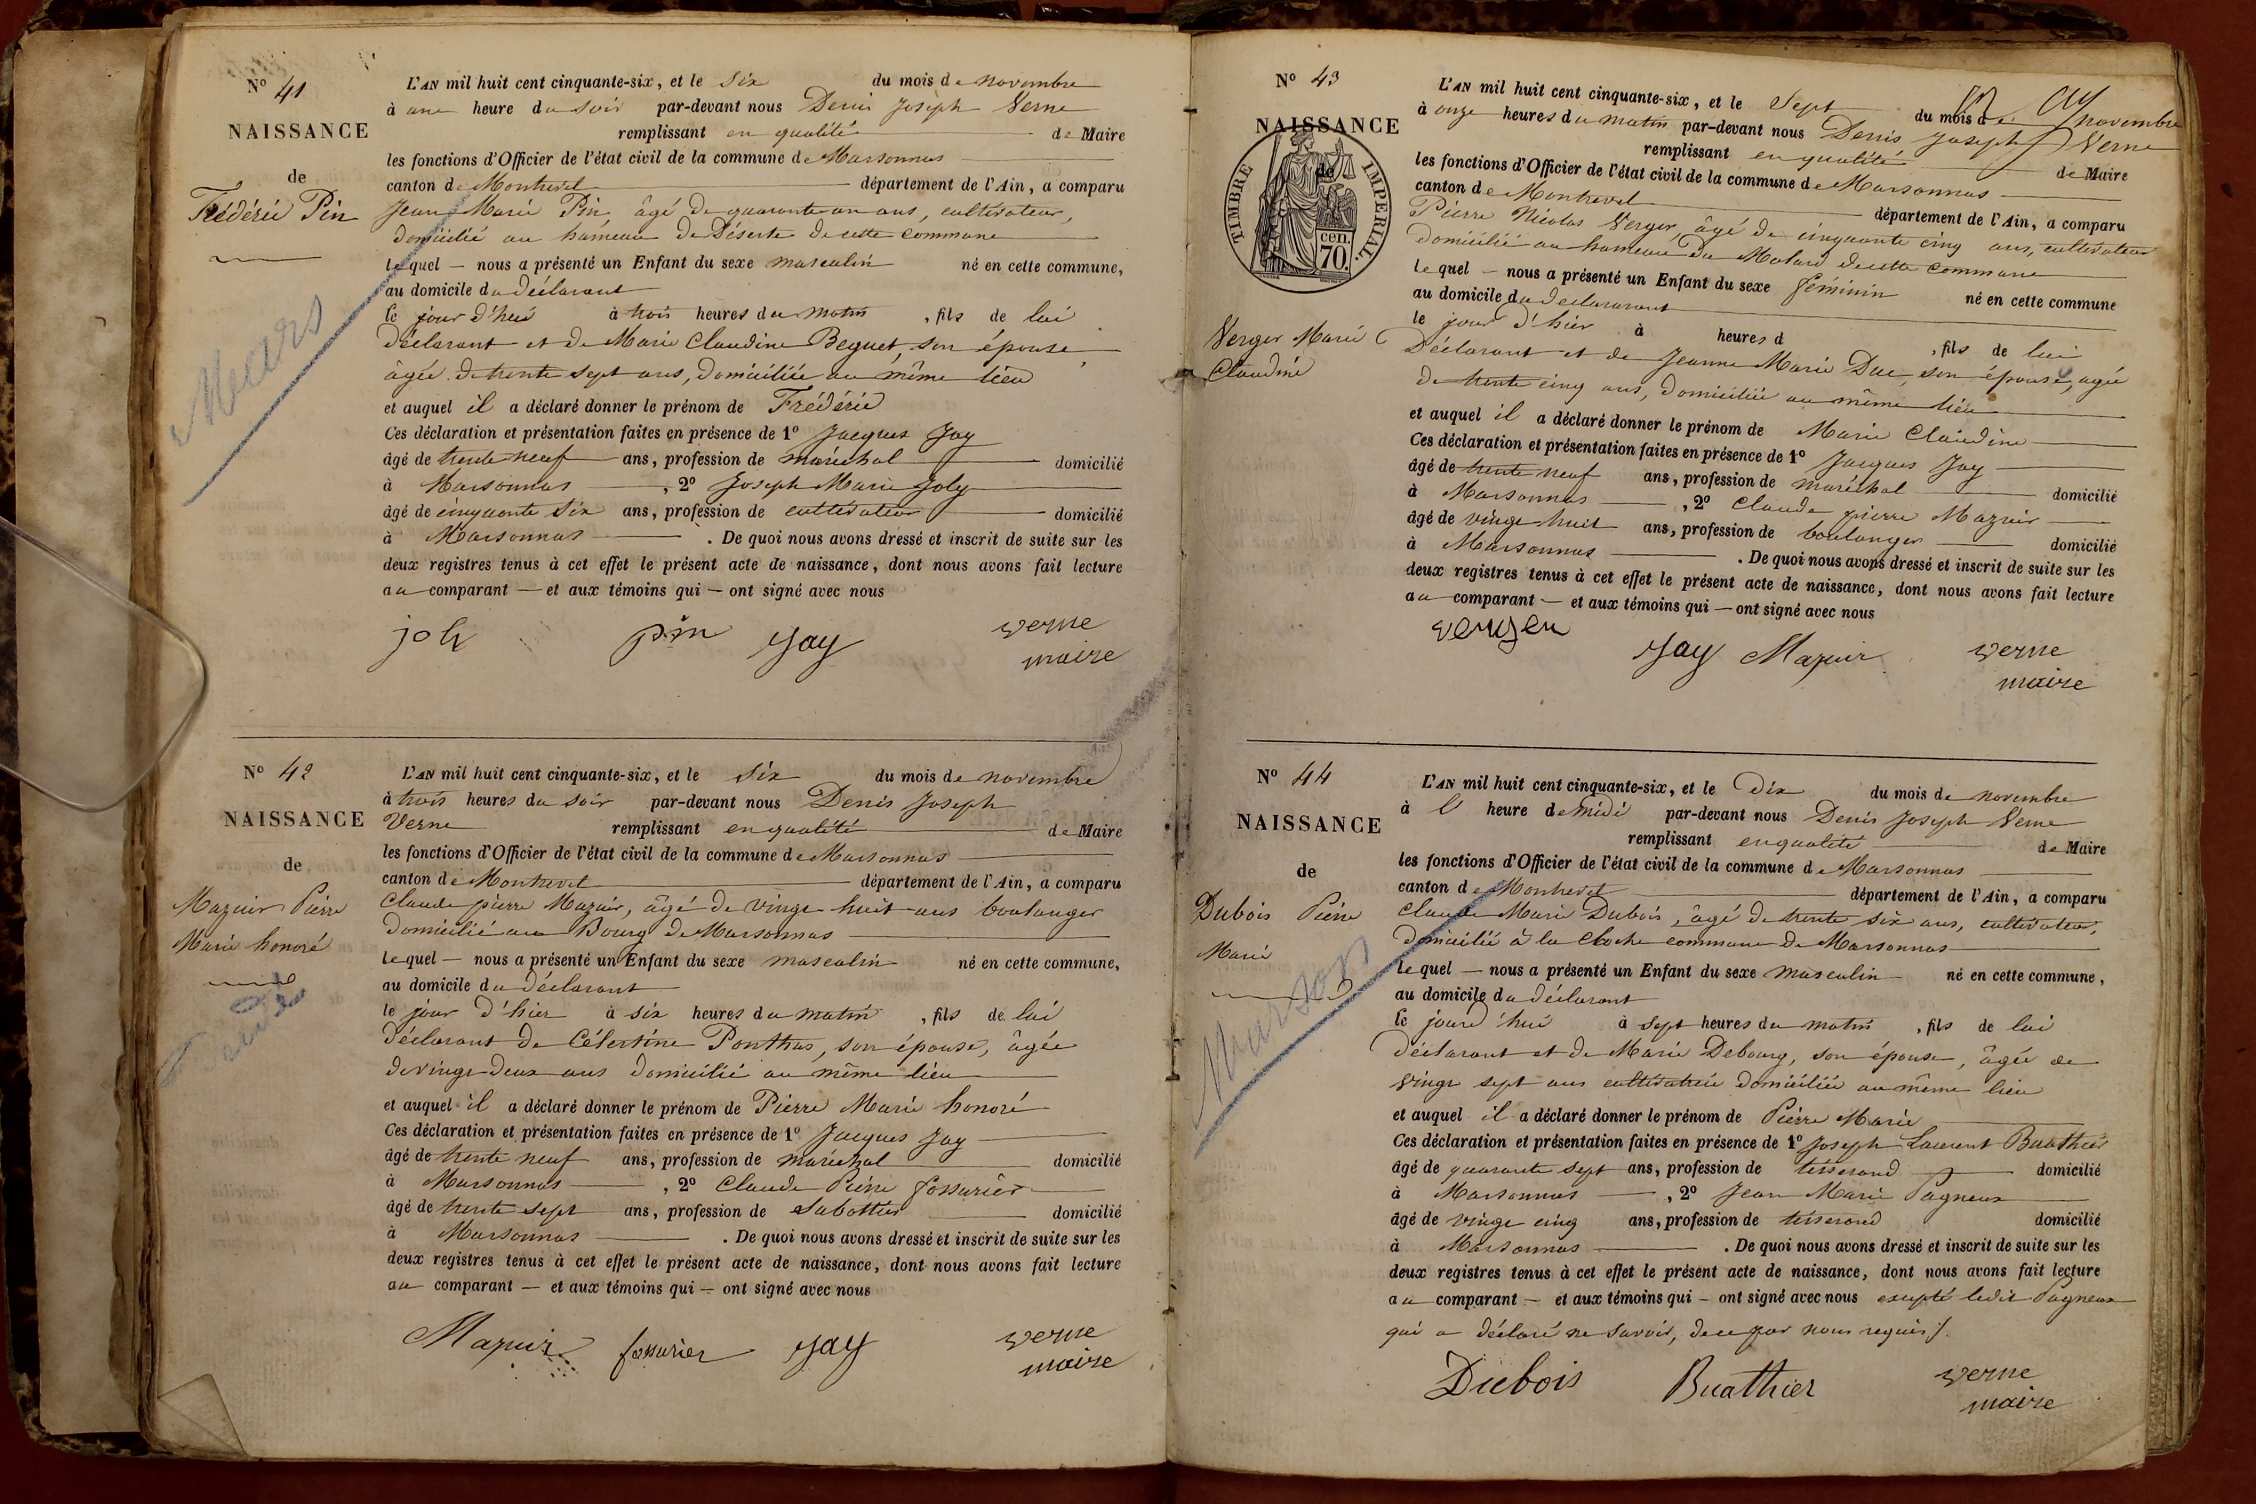 N° 41
NAISSANCE
de
Frédéric Pin
L'AN mil huit cent cinquante-six, et le six du mois de novembre
à une heure du soir par-devant nous Denis Joseph Verne
remplissant en qualité de Maire
les fonctions d'Officier de l'état civil de la commune de Marsonnas
canton de Montrevel département de l'Ain, a comparu
Jean Marie Pin, âgé de quarante un ans, cultivateur,
domicilié au hameau de Déserte de cette commune
lequel — nous a présenté un Enfant du sexe masculin né en cette commune,
au domicile du déclarant
le jour d'hui à trois heures du matin, fils de lui
déclarant et de Marie Claudine Beguet, son épouse
âgée de trente sept ans, domiciliée au même lieu
et auquel il a déclaré donner le prénom de Frédéric
Ces déclaration et présentation faites en présence de 1° Jacques Jay
âgé de trente neuf ans, profession de maréchal domicilié
à Marsonnas, 2° Joseph Marie Joly
âgé de cinquante six ans, profession de cultivateur domicilié
à Marsonnas. De quoi nous avons dressé et inscrit de suite sur les
deux registres tenus à cet effet le présent acte de naissance, dont nous avons fait lecture
au comparant — et aux témoins qui — ont signé avec nous
joly pin jay verne
maire
N° 42
NAISSANCE
de
Mazuir Pierre
Marie honoré
L'AN mil huit cent cinquante-six, et le six du mois de novembre
à trois heures du soir par-devant nous Denis Joseph
Verne remplissant en qualité de Maire
les fonctions d'Officier de l'état civil de la commune de Marsonnas
canton de Montrevel département de l'Ain, a comparu
Claude pierre Mazuir, âgé de vingt huit ans boulanger
domicilié au Bourg de Marsonnas
lequel — nous a présenté un Enfant du sexe masculin né en cette commune,
au domicile du déclarant
le jour d'hier à six heures du matin, fils de lui
déclarant de Célestine Ponthus, son épouse, âgée
de vingt deux ans domicilié au même lieu
et auquel il a déclaré donner le prénom de Pierre Marie honoré
Ces déclaration et présentation faites en présence de 1° Jacques Jay
âgé de trente neuf ans, profession de maréchal domicilié
à Marsonnas, 2° Claude Pierre fossurier
âgé de trente sept ans, profession de Sabottier domicilié
à Marsonnas. De quoi nous avons dressé et inscrit de suite sur les
deux registres tenus à cet effet le présent acte de naissance, dont nous avons fait lecture
au comparant — et aux témoins qui — ont signé avec nous
Mazuir fossurier jay verne
maire
N° 43
NAISSANCE
de
TIMBRE IMPERIAL.
cen.
70.
Verger Marie
Claudine
L'AN mil huit cent cinquante-six, et le Sept du mois de novembre
à onze heures du matin par-devant nous Denis Joseph Verne
remplissant en qualité de Maire
les fonctions d'Officier de l'état civil de la commune de Marsonnas
canton de Montrevel département de l'Ain, a comparu
Pierre Nicolas Verger, âgé de cinquante cinq ans, cultivateur
domicilié au hameau du Molard de cette commune
lequel — nous a présenté un Enfant du sexe féminin né en cette commune
au domicile du declararant
le jour d'hier à heures d, fils de lui
Déclarant et de Jeanne Marie Duc, son épouse, agée
de trente cinq ans, domiciliée au même lieu
et auquel il a déclaré donner le prénom de Marie Claudine
Ces déclaration et présentation faites en présence de 1° Jacques Jay
âgé de trente neuf ans, profession de maréchal domicilié
à Marsonnas, 2° Claude pierre Mazuir
âgé de vingt huit ans, profession de boulanger domicilié
à Marsonnas. De quoi nous avons dressé et inscrit de suite sur les
deux registres tenus à cet effet le présent acte de naissance, dont nous avons fait lecture
au comparant — et aux témoins qui — ont signé avec nous
verger jay Mazuir verne
maire
N° 44
NAISSANCE
de
Dubois Pierre
Marie
L'AN mil huit cent cinquante-six, et le dix du mois de novembre
à l'heure de midi par-devant nous Denis Joseph Verne
remplissant en qualité de Maire
les fonctions d'Officier de l'état civil de la commune de Marsonnas
canton de Montrevel département de l'Ain, a comparu
Claude Marie Dubois, âgé de trente six ans, cultivateur,
domicilié à la Cloche commune de Marsonnas
lequel — nous a présenté un Enfant du sexe masculin né en cette commune,
au domicile du déclarant
le jourd'hui à sept heures du matin, fils de lui
déclarant et de Marie Debourg, son épouse, âgée de
vingt sept ans cultivatrice domiciliée au même lieu
et auquel il a déclaré donner le prénom de Pierre Marie
Ces déclaration et présentation faites en présence de 1° Joseph Laurent Buathier
âgé de quarante sept ans, profession de tisserand domicilié
à Marsonnas, 2° Jean Marie Pagneux
âgé de vingt cinq ans, profession de tisserand domicilié
à Marsonnas. De quoi nous avons dressé et inscrit de suite sur les
deux registres tenus à cet effet le présent acte de naissance, dont nous avons fait lecture
au comparant — et aux témoins qui — ont signé avec nous excepté ledit Pagneux
qui a déclaré ne savoir, de ce par nous requis /.
Dubois Buathier verne
maire